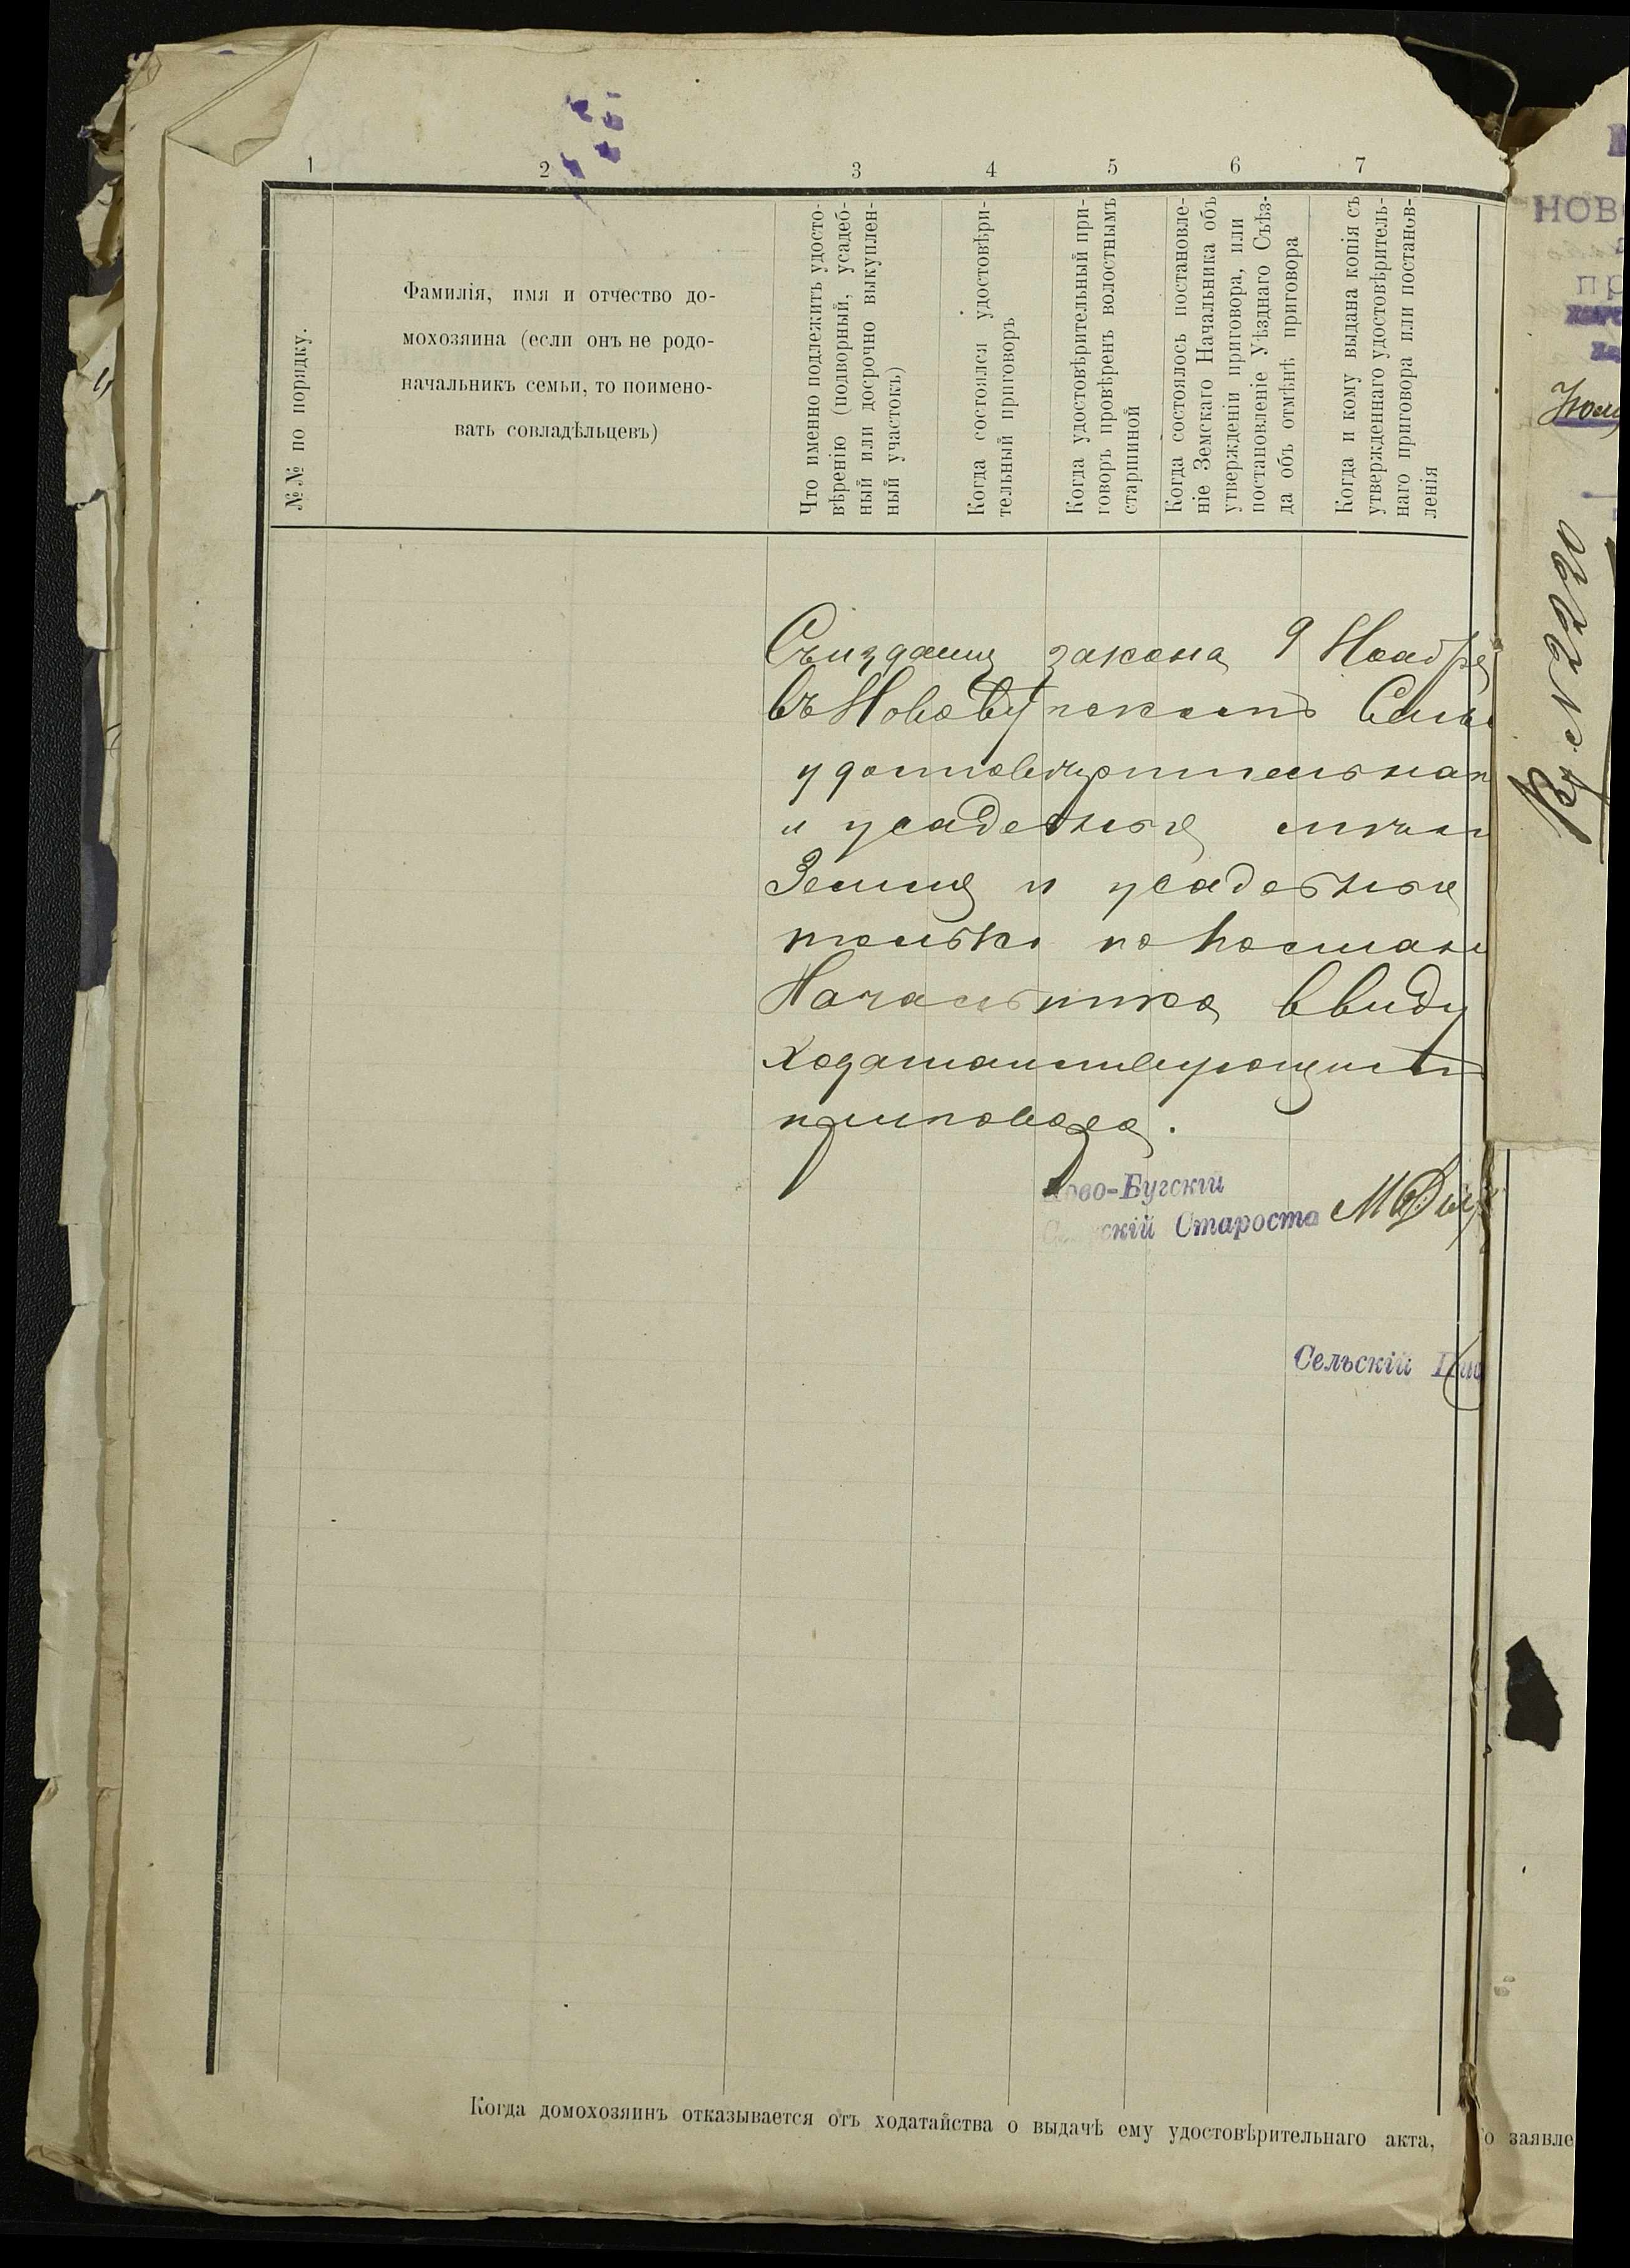 1 2 3 4 5 6 7
№№ по порядку.
Фамилія, имя и отчество до-
мохозяина (если онъ не родо-
начальникъ семьи, то поимено-
вать совладѣльцевъ)
Что именно подлежитъ удосто-
вѣренію (подворный, усадеб-
ный или досрочно выкуплен-
ный участокъ)
Когда состоялся удостовѣри-
тельный приговоръ
Когда удостовѣрительный при-
говоръ провѣренъ волостнымъ
старшиной
Когда состоялось постановле-
ніе Земскаго Начальника объ
утвержденіи приговора, или
постановленіе Уѣзднаго Съѣз-
да объ отмѣнѣ приговора
Когда и кому выдана копія съ
утвержденнаго удостовѣритель-
наго приговора или постанов-
ленія
Съ изданія закона 9 Ноября
въ Новобугскомъ Сель
удостовѣрительнаг
и усадебныя
Земли и усадебныя
только по постан
Начальника ввиду
ходатайствующимъ
приговора.
Ново-Бугскій
Сельскій Староста
Сельскій Пис
Когда домохозяинъ отказывается отъ ходатайства о выдачѣ ему удостовѣрительнаго акта, то заявле
НОВО
№ 2220